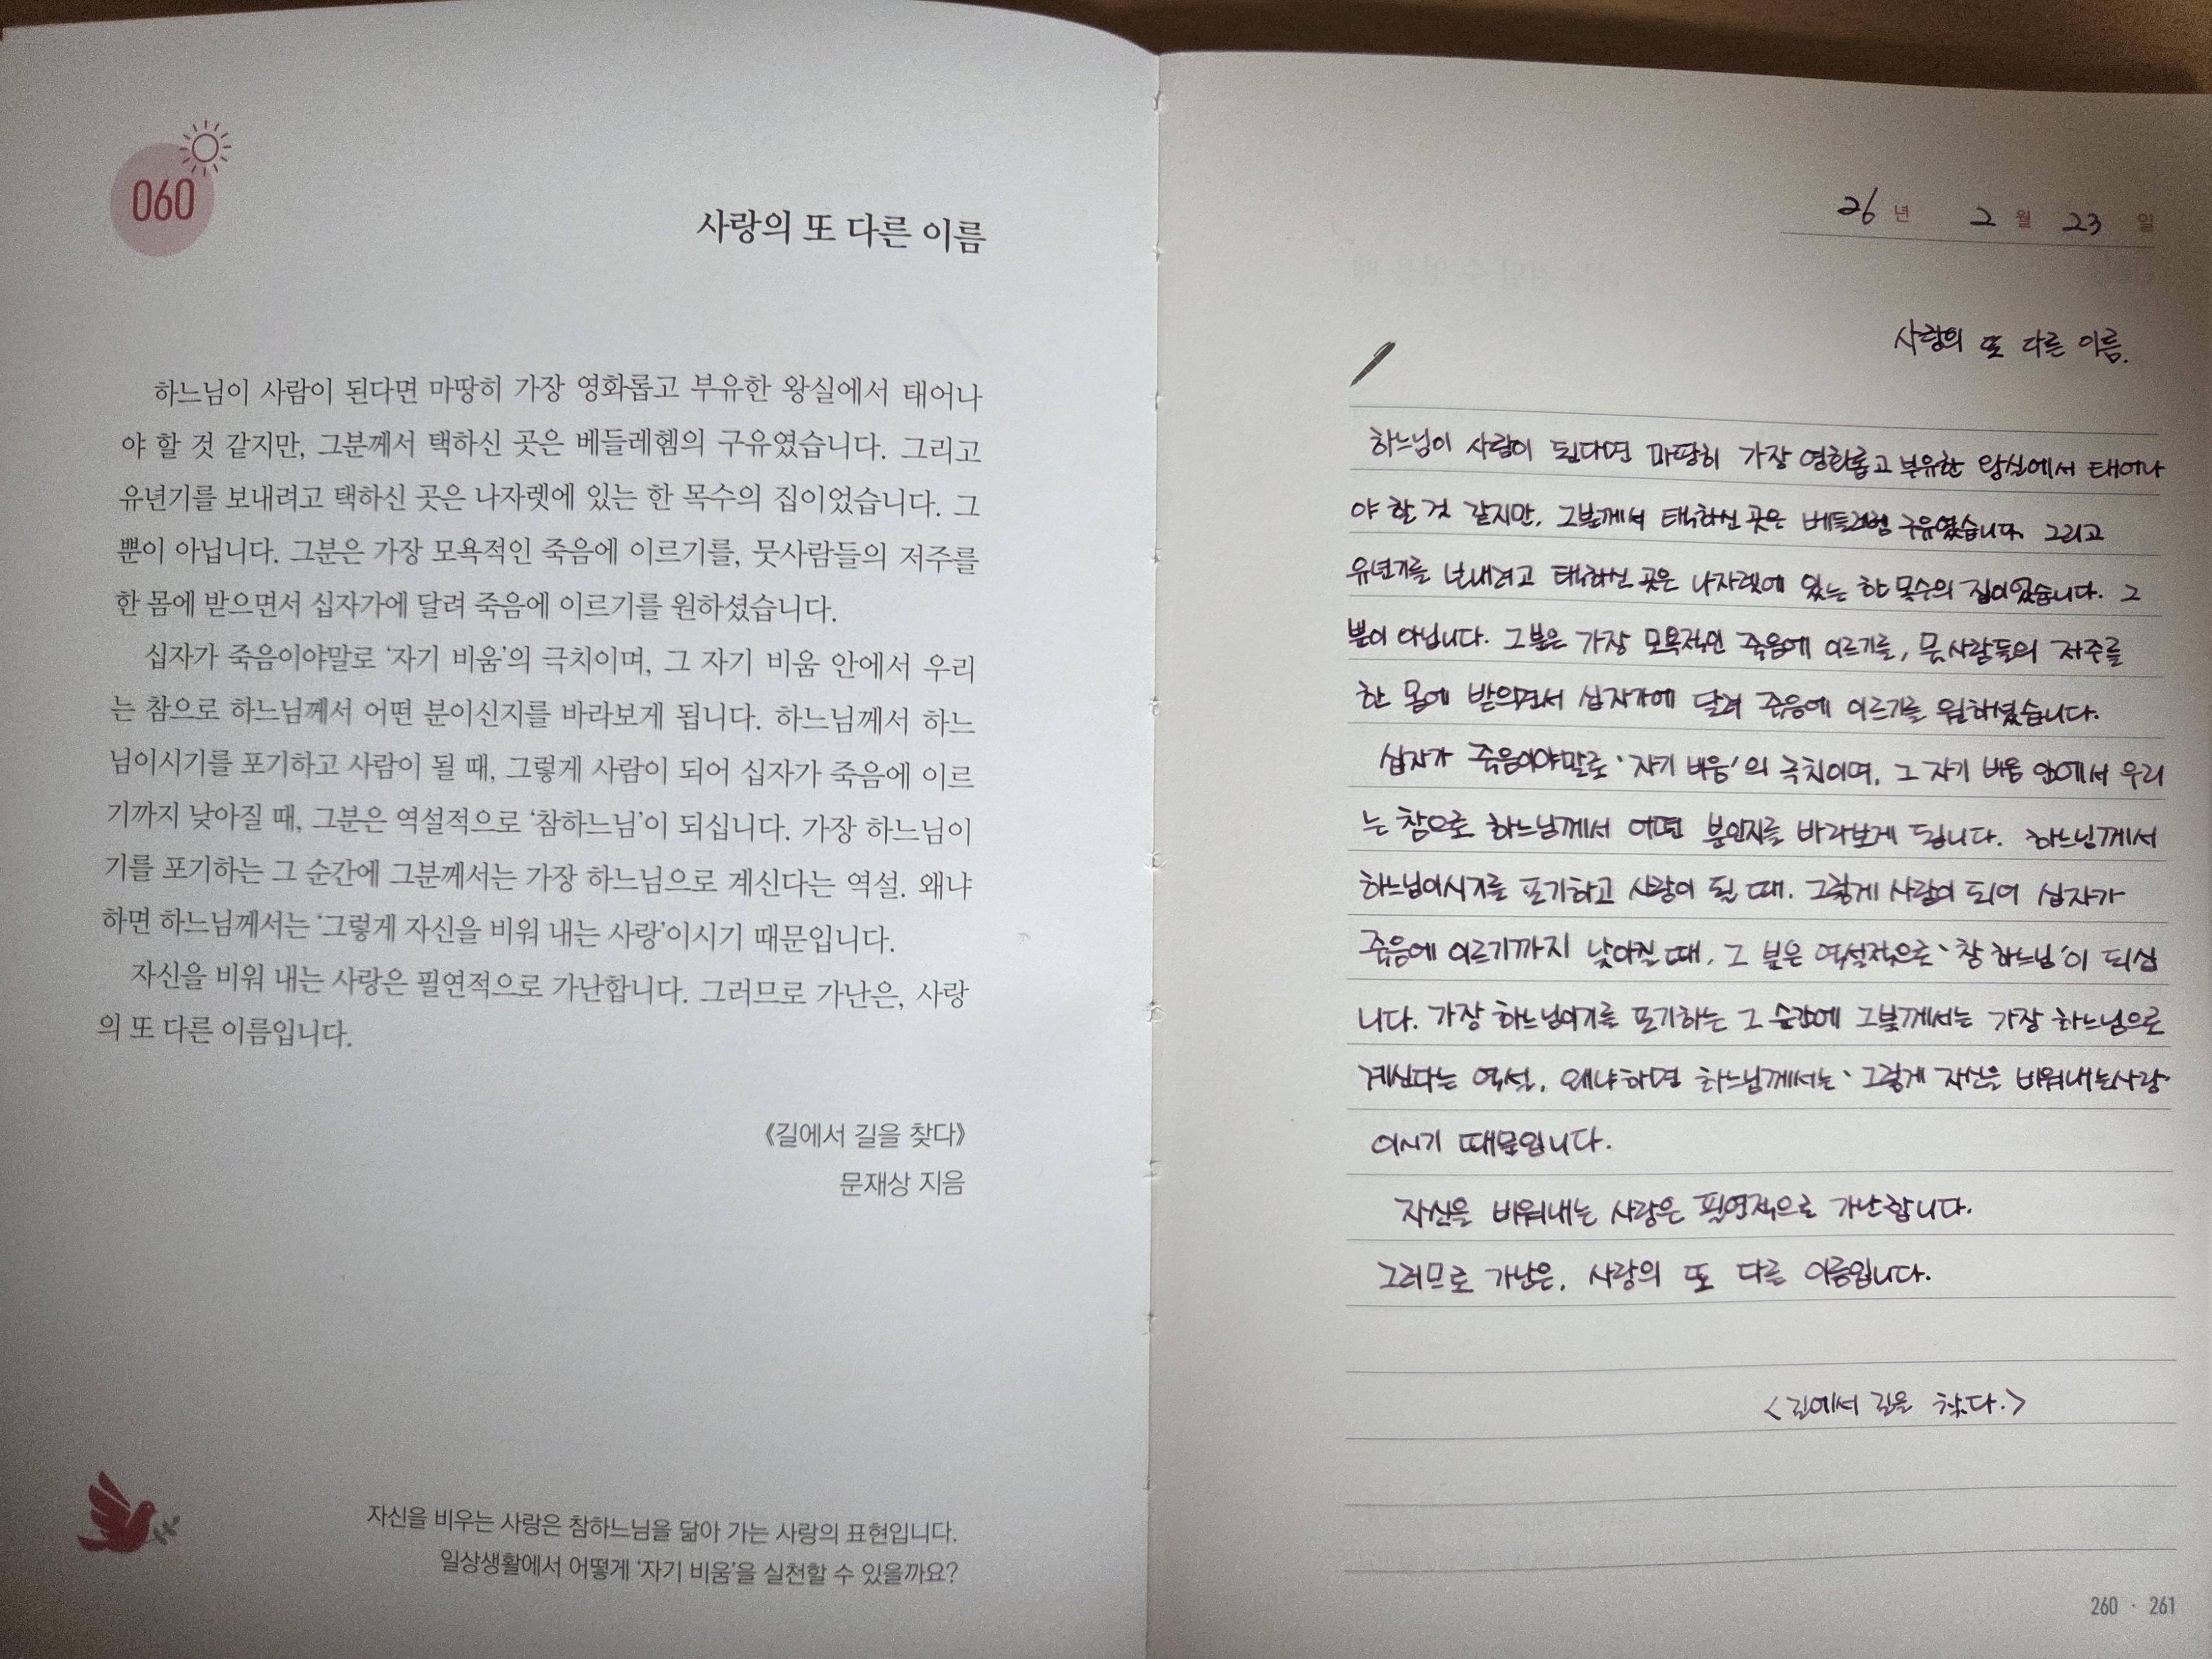 060
사랑의 또 다른 이름
하느님이 사람이 된다면 마땅히 가장 영화롭고 부유한 왕실에서 태어나
야 할 것 같지만, 그분께서 택하신 곳은 베들레헴의 구유였습니다. 그리고
유년기를 보내려고 택하신 곳은 나자렛에 있는 한 목수의 집이었습니다. 그
뿐이 아닙니다. 그분은 가장 모욕적인 죽음에 이르기를, 뭇사람들의 저주를
한 몸에 받으면서 십자가에 달려 죽음에 이르기를 원하셨습니다.
십자가 죽음이야말로 ‘자기 비움’의 극치이며, 그 자기 비움 안에서 우리
는 참으로 하느님께서 어떤 분이신지를 바라보게 됩니다. 하느님께서 하느
님이시기를 포기하고 사람이 될 때, 그렇게 사람이 되어 십자가 죽음에 이르
기까지 낮아질 때, 그분은 역설적으로 ‘참하느님’이 되십니다. 가장 하느님이
기를 포기하는 그 순간에 그분께서는 가장 하느님으로 계신다는 역설. 왜냐
하면 하느님께서는 ‘그렇게 자신을 비워 내는 사랑’이시기 때문입니다.
자신을 비워 내는 사랑은 필연적으로 가난합니다. 그러므로 가난은, 사랑
의 또 다른 이름입니다.
《길에서 길을 찾다》
문재상 지음
자신을 비우는 사랑은 참하느님을 닮아 가는 사랑의 표현입니다.
일상생활에서 어떻게 ‘자기 비움’을 실천할 수 있을까요?
26 년 2 월 23 일
사랑의 또 다른 이름.
하느님이 사람이 된다면 마땅히 가장 영화롭고 부유한 왕실에서 태어나
야 할 것 같지만, 그분께서 택하신 곳은 구유였습니다. 그리고
유년기를 보내려고 택하신 곳은 나자렛에 있는 한 목수의 집이었습니다. 그
뿐이 아닙니다. 그분은 가장 모욕적인 죽음에 이르기를, 뭇사람들의 저주를
한 몸에 받으면서 십자가에 달려 죽음에 이르기를 원하셨습니다.
십자가 죽음이야말로 ‘자기 비움’의 극치이며, 그 자기 비움 안에서 우리
는 참으로 하느님께서 어떤 분인지를 바라보게 됩니다. 하느님께서
하느님이시기를 포기하고 사람이 될 때, 그렇게 사람이 되어 십자가
죽음에 이르기까지 낮아질 때, 그 분은 역설적으로 ‘참 하느님’이 되십
니다. 가장 하느님이기를 포기하는 그 순간에 그분께서는 가장 하느님으로
계신다는 역설. 왜냐하면 하느님께서는 ‘그렇게 자신을 비워내는사랑’
이시기 때문입니다.
자신을 비워내는 사랑은 필연적으로 가난합니다.
그러므로 가난은, 사랑의 또 다른 이름입니다.
<길에서 길을 찾다.>
260 · 261